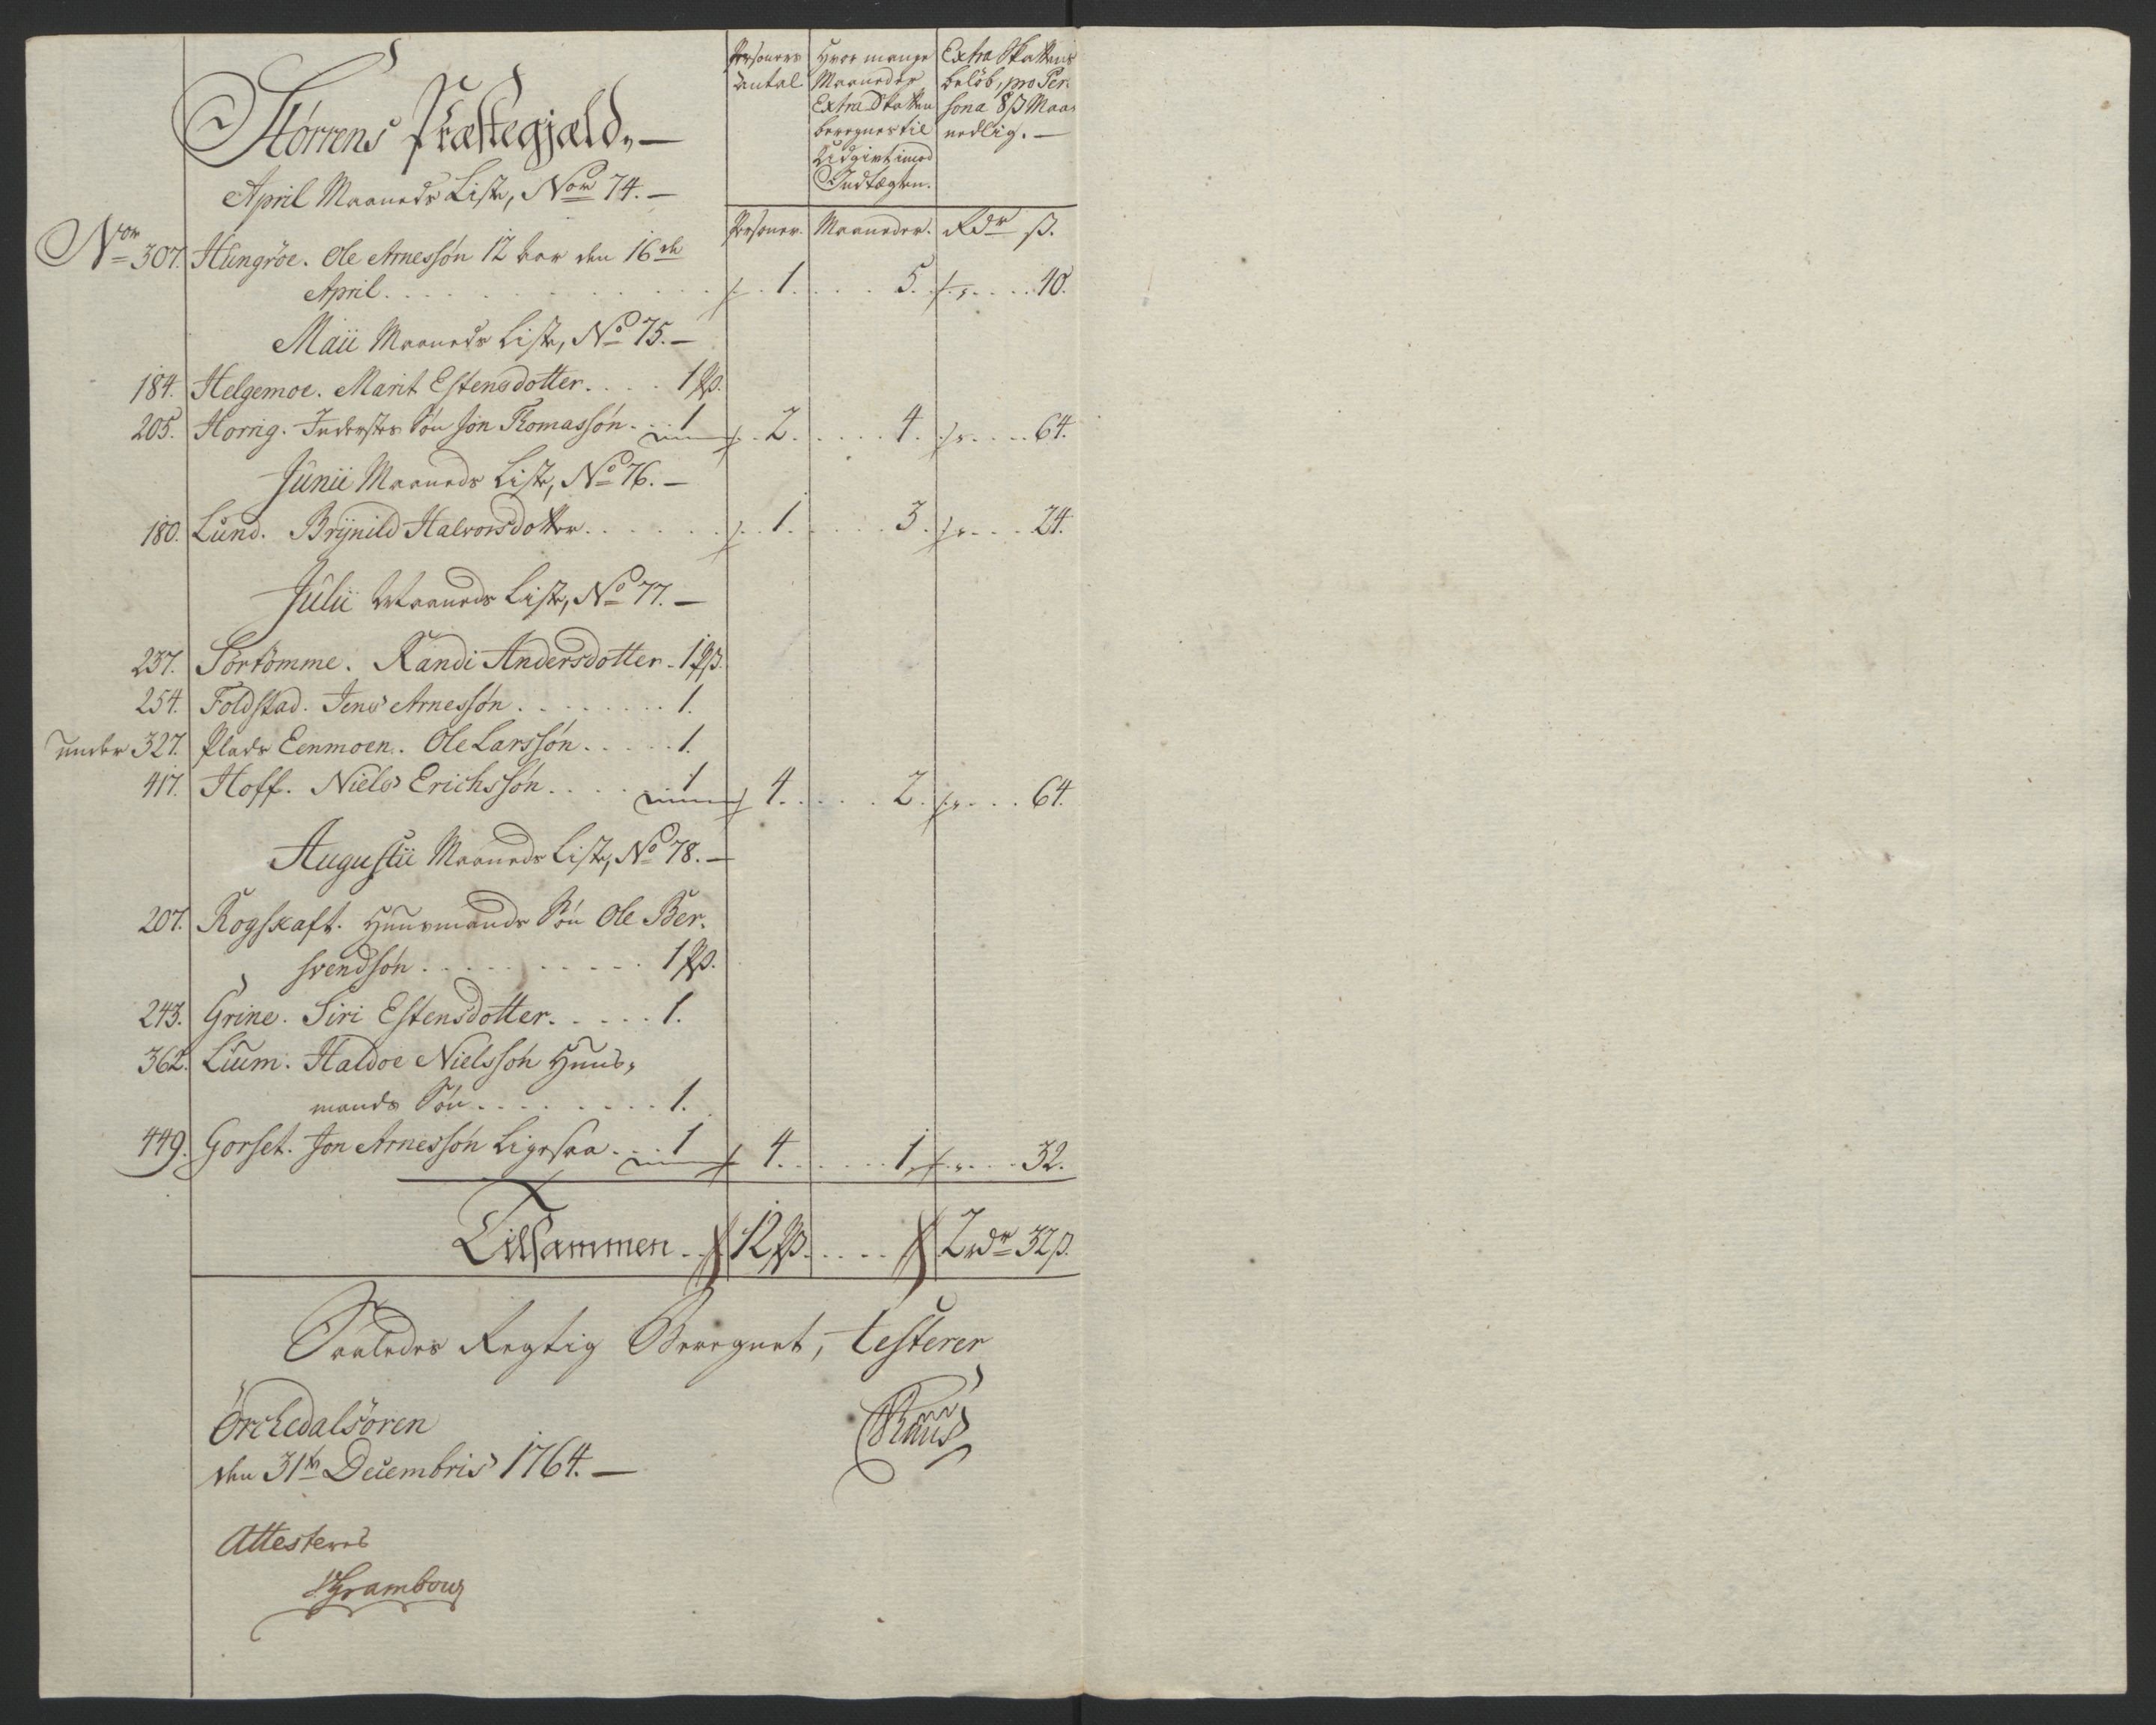 Personers Antal
Hvor mange Maaneder Extra Skatten beregnes til Udgivt imod Indtægten.
Extra Skattens beløb, pro Persona 8 ß Maanedlig. —
Størrens Præstegjæld, —
April Maaneds Liste, Nor 74. —
Personer. Maaneder. Rdr ß.
Nor 307. Hungröe. Ole Arnessøn 12 aar den 16de
April . . . . 1. . . . 5. . . . 40.
Maii Maaneds Liste, No 75. —
184. Helgemoe. Marit Estensdotter. . . . 1 ps.
205. Horrig. Inderstes Søn Jon Thomassøn. . . 1 . . 2. . . . 4. . . . 64.
Junii Maaneds Liste, No 76. —
180. Lund. Brynild Halvorsdotter. . . . . 1. . . . 3. . . . 24.
Julii Maaneds Liste, No 77. —
237. Sörtömme. Randi Andersdotter. 1 ps.
254. Foldstad. Jens Arnessøn. . . . . 1.
under 327. Plads Eenmoen. Ole Larssøn. . . . . 1.
417. Hoff. Niels Erichssøn. . . . . 1 4. . . . 2. . . . 64.
Augustii Maaneds Liste, No 78. —
207. Rogskaft. Huusmands Søn Ole Ber-
svendsøn . . . . . 1 ps.
243. Grine. Siri Estensdotter. . . . . 1.
362. Lium. Haldoe Nielssøn Huus-
mands Søn . . . . . 1.
449. Gorset. Jon Arnessøn Ligesaa. . . 1 4. . . . 1. . . . 32.
Tilsammen. . 12 ps. . . . 2 rdr 32 ß.
Saaledes Rigtig Beregnet, testerer
Örchedalsören
den 31te Decembris 1764. —
Attesteres